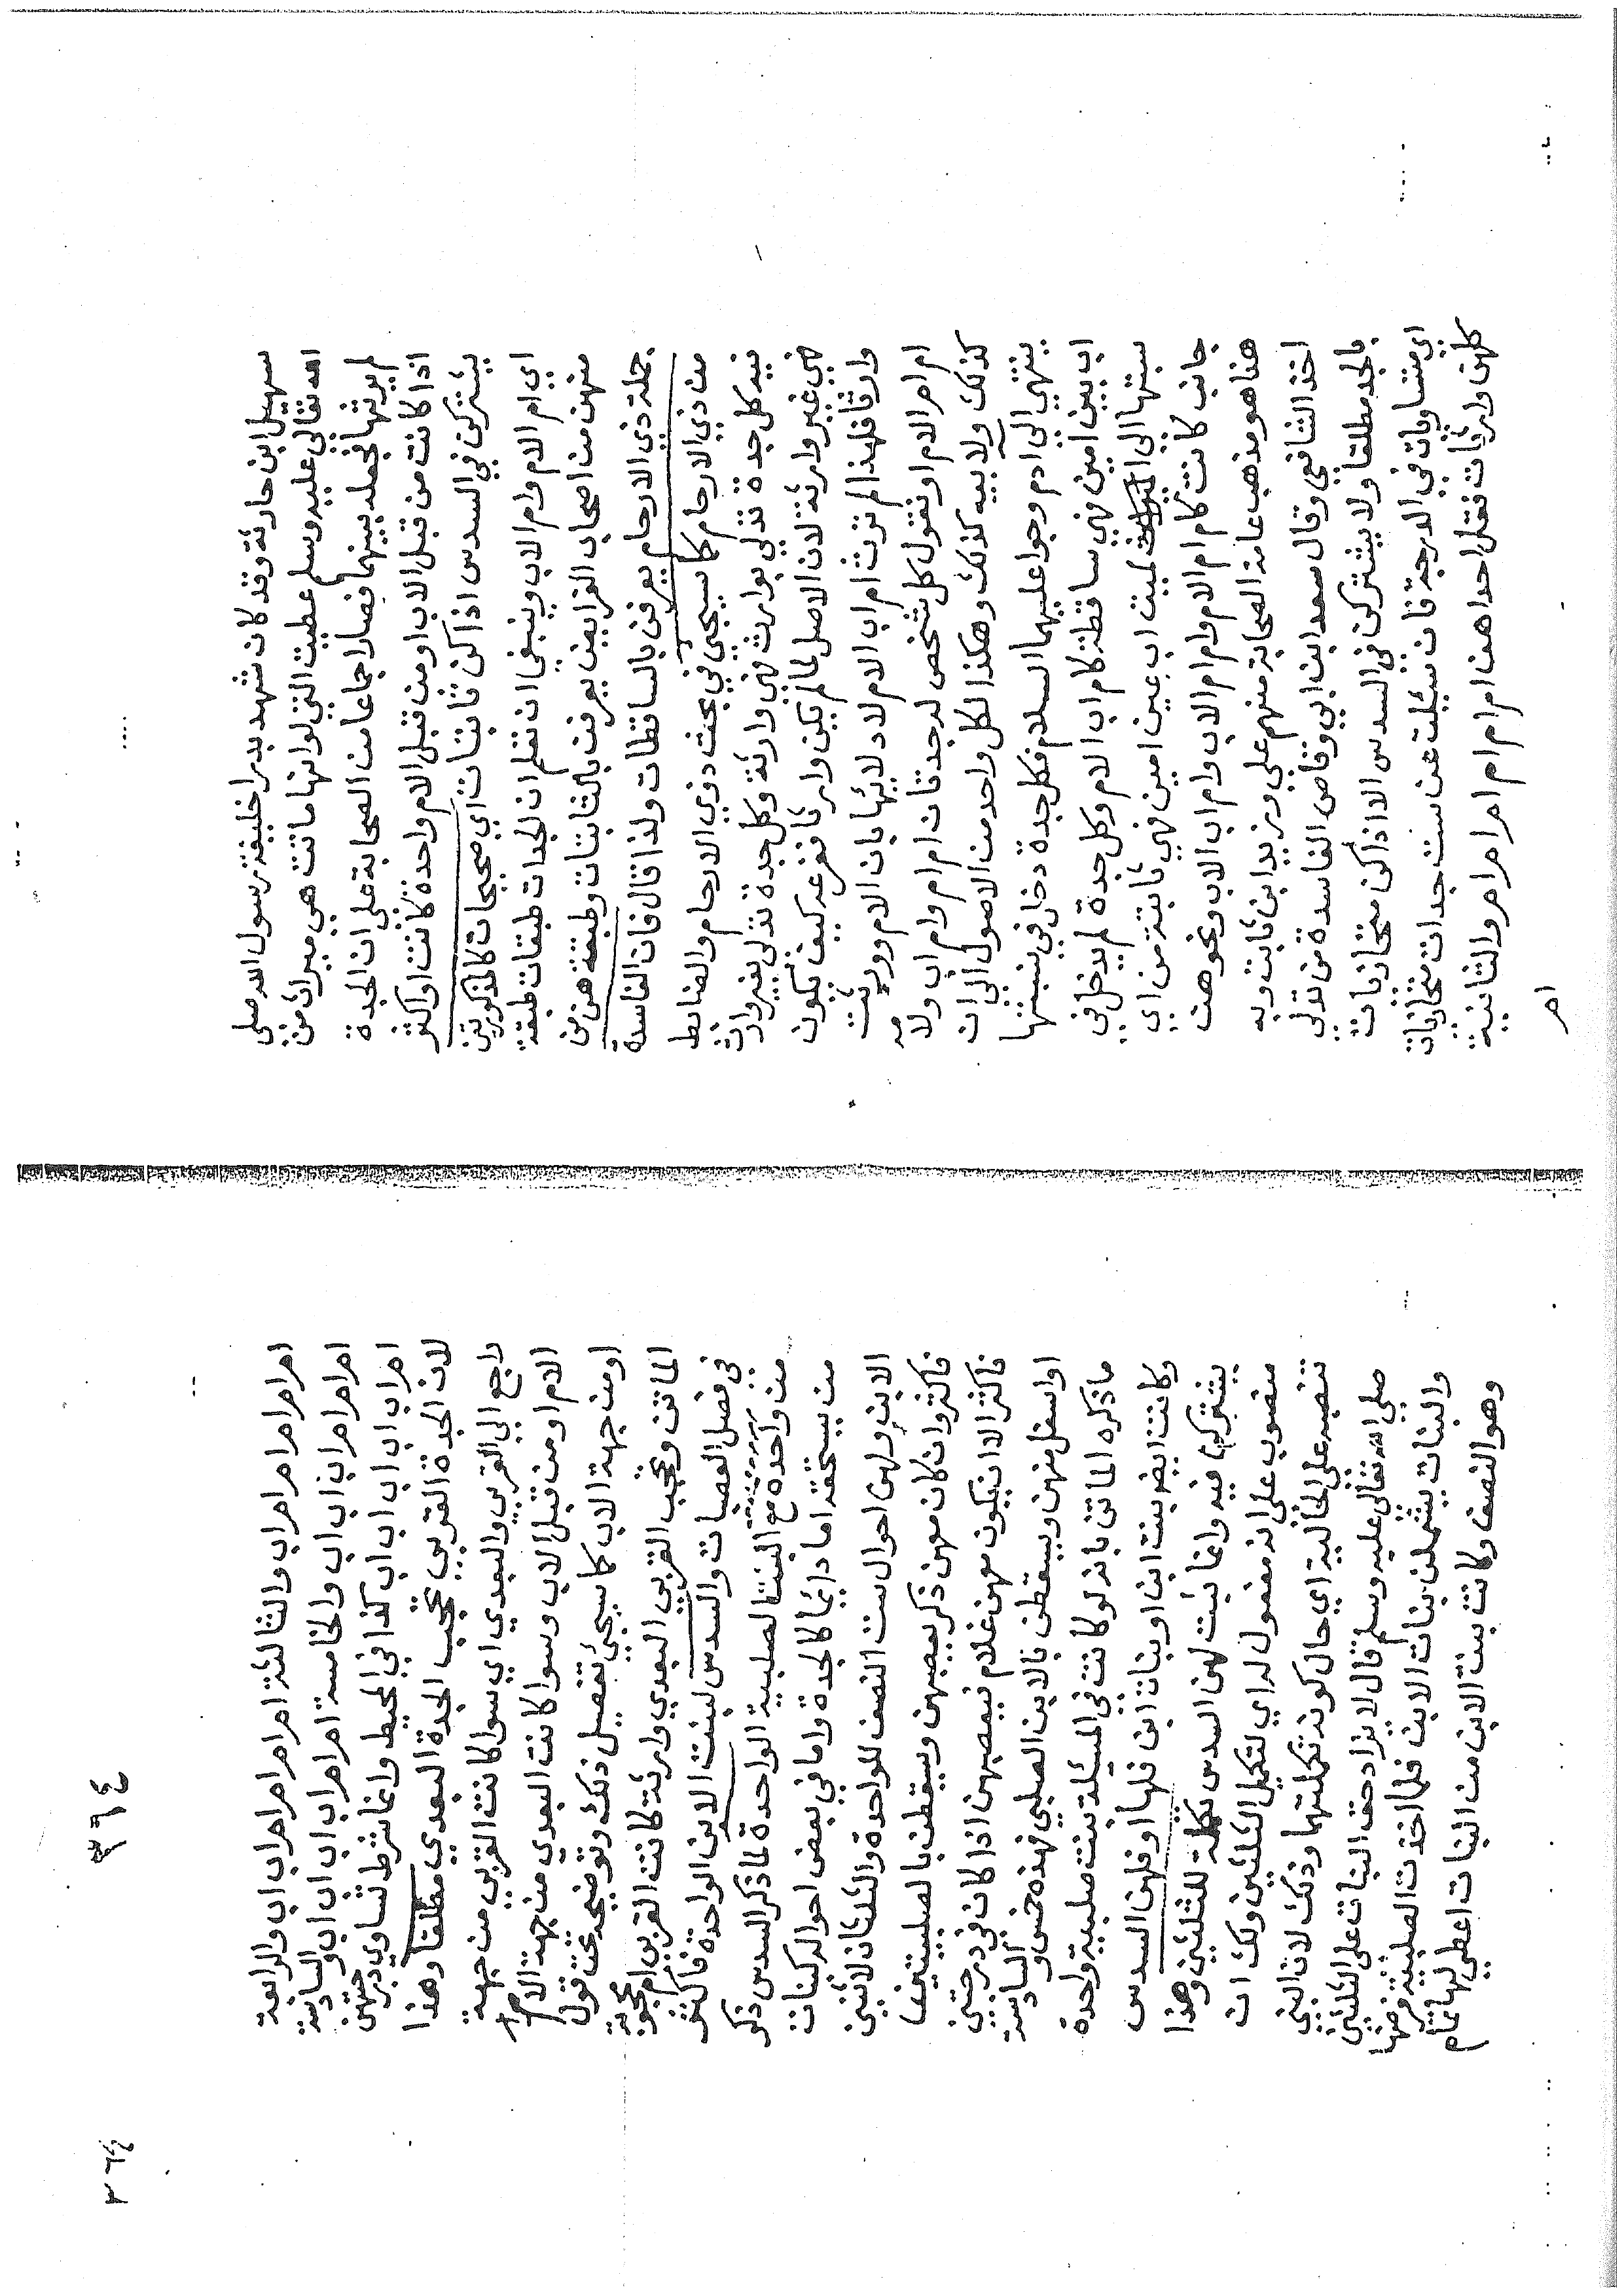 سهيل ابن حارثة وقد كان شهد بدرا خليفة رسول الله صلى
الله تعالى عليه وسلم عطيت التي لوانها ماتت هي ميراث من
لم يورثها فجعله بينهما فصار اجماعا من الصحابة على ان الجدة
اذا كانت من قبل الاب او من قبل الام واحدة كانت او اكثر
يشتركن في السدس اذا كن ثابتات اي صحيحات كالمذكورتين
اي ام الام وام الاب وينبغي ان تعلم ان الجدات طبقات طبقة
منهن من اصحاب الفرايض يعرفن بالثابتات وطبقة هن من
جملة ذي الارحام يعرفن بالساقطات ولذا قال فان الفاسدة
من ذي الارحام كما سيجئ في بحث ذوي الارحام والضابط
فيه كل جدة تدلي بوارث فهي وارثة وكل جدة تدلي بغير وارث
فهي غير وارثة لان الاصل لما لم يكن وارثا ففرعه كيف يكون
وارثا فلهذا لم ترث ام اب الام لادلائها باب الام وورثت
ام ام الام او نقول كل شخص له جدتان ام ام وام اب ولامه
كذلك ولابيه كذلك وهكذا لكل واحد من الاصول الى ان
ينتهي الى ادم وحوا عليهما السلام فكل جدة دخل في نسبتها
اب بين امين فهي ساقطة كام اب الام وكل جدة لم يدخل في
نسبتها الى الميت اب بين امين فهي ثابتة من اي
جانب كانت كام ام الام وام ام الاب وام اب الاب ونحوهن
هذا هو مذهب عامة الصحابة منهم علي وزيد ابن ثابت وبه
اخذ الشافعي وقال سعد ابن ابي وقاص الفاسدة من تدلي
بالجد مطلقا ولا يشتركن في السدس الا اذا كن متحاذيات
اي متساويات في الدرجة فان سئلت عن ست جدات متحاذيات
كلهن وارثات فقل احداهن ام ام ام ام ام ام والثانية
ام
٣٦٤
٣٦٤
ام ام ام ام ام اب والثالثة ام ام ام ام اب اب والرابعة
ام ام ام اب اب اب والخامسة ام ام اب اب اب اب والسادسة
ام اب اب اب اب اب كذا في المحيط وانما شرط تساوي درجتهن
لان الجدة القربي تحجب الجدة البعدي مطلقا وهذا
راجع الى القربي والبعدي اي سوا كانت القربي من جهة
الام او من قبل الاب وسوا كانت البعدي من جهة الام
او من جهة الاب كما سيجئ تفصيل ذلك وتوضيحه تحت قول
الماتن وتحجب القربي البعدي وارثة كانت القربي ام محجوبة
في فصل العصبات والسدس لبنت الابن الواحدة فاكثر
من واحدة مع البنت الصلبية الواحدة لما ذكر السدس ذكر
من يستحقه اما دايما كالجدة واما في بعض احواله كبنات
الابن ولهن احوال ست النصف للواحدة والثلثان لاثنتين
فاكثر وان كان معهن ذكر يعصبهن ويسقطن بالصلبيتين
فاكثر الا ان يكون معهن غلام فيعصبهن اذا كان في درجتهن
او اسفل منهن ويسقطن بالابن الصلبي فهذه خمس والسادسة
ما ذكره الماتن بانه لو كانت في المسئلة بنت صلبية واحدة
وكانت ايضا بنت ابن او بنات ابن فلها او فلهن السدس
يشتركن فيه وانما يثبت لهن السدس تكملة للثلثين وهذا
منصوب على انه مفعول له اي لتكميل الثلثين ولك ان
تنصبه على الحالية اي حال كونه تكملتهما وذلك لان النبي
صلى الله تعالى عليه وسلم قال لا يزاد حق البنات على الثلثين
والبنات يشتملن بنات الابن فلما اخذت الصلبية فرضها
وهو النصف وكانت بنت الابن من البنات اعطي لها تمام